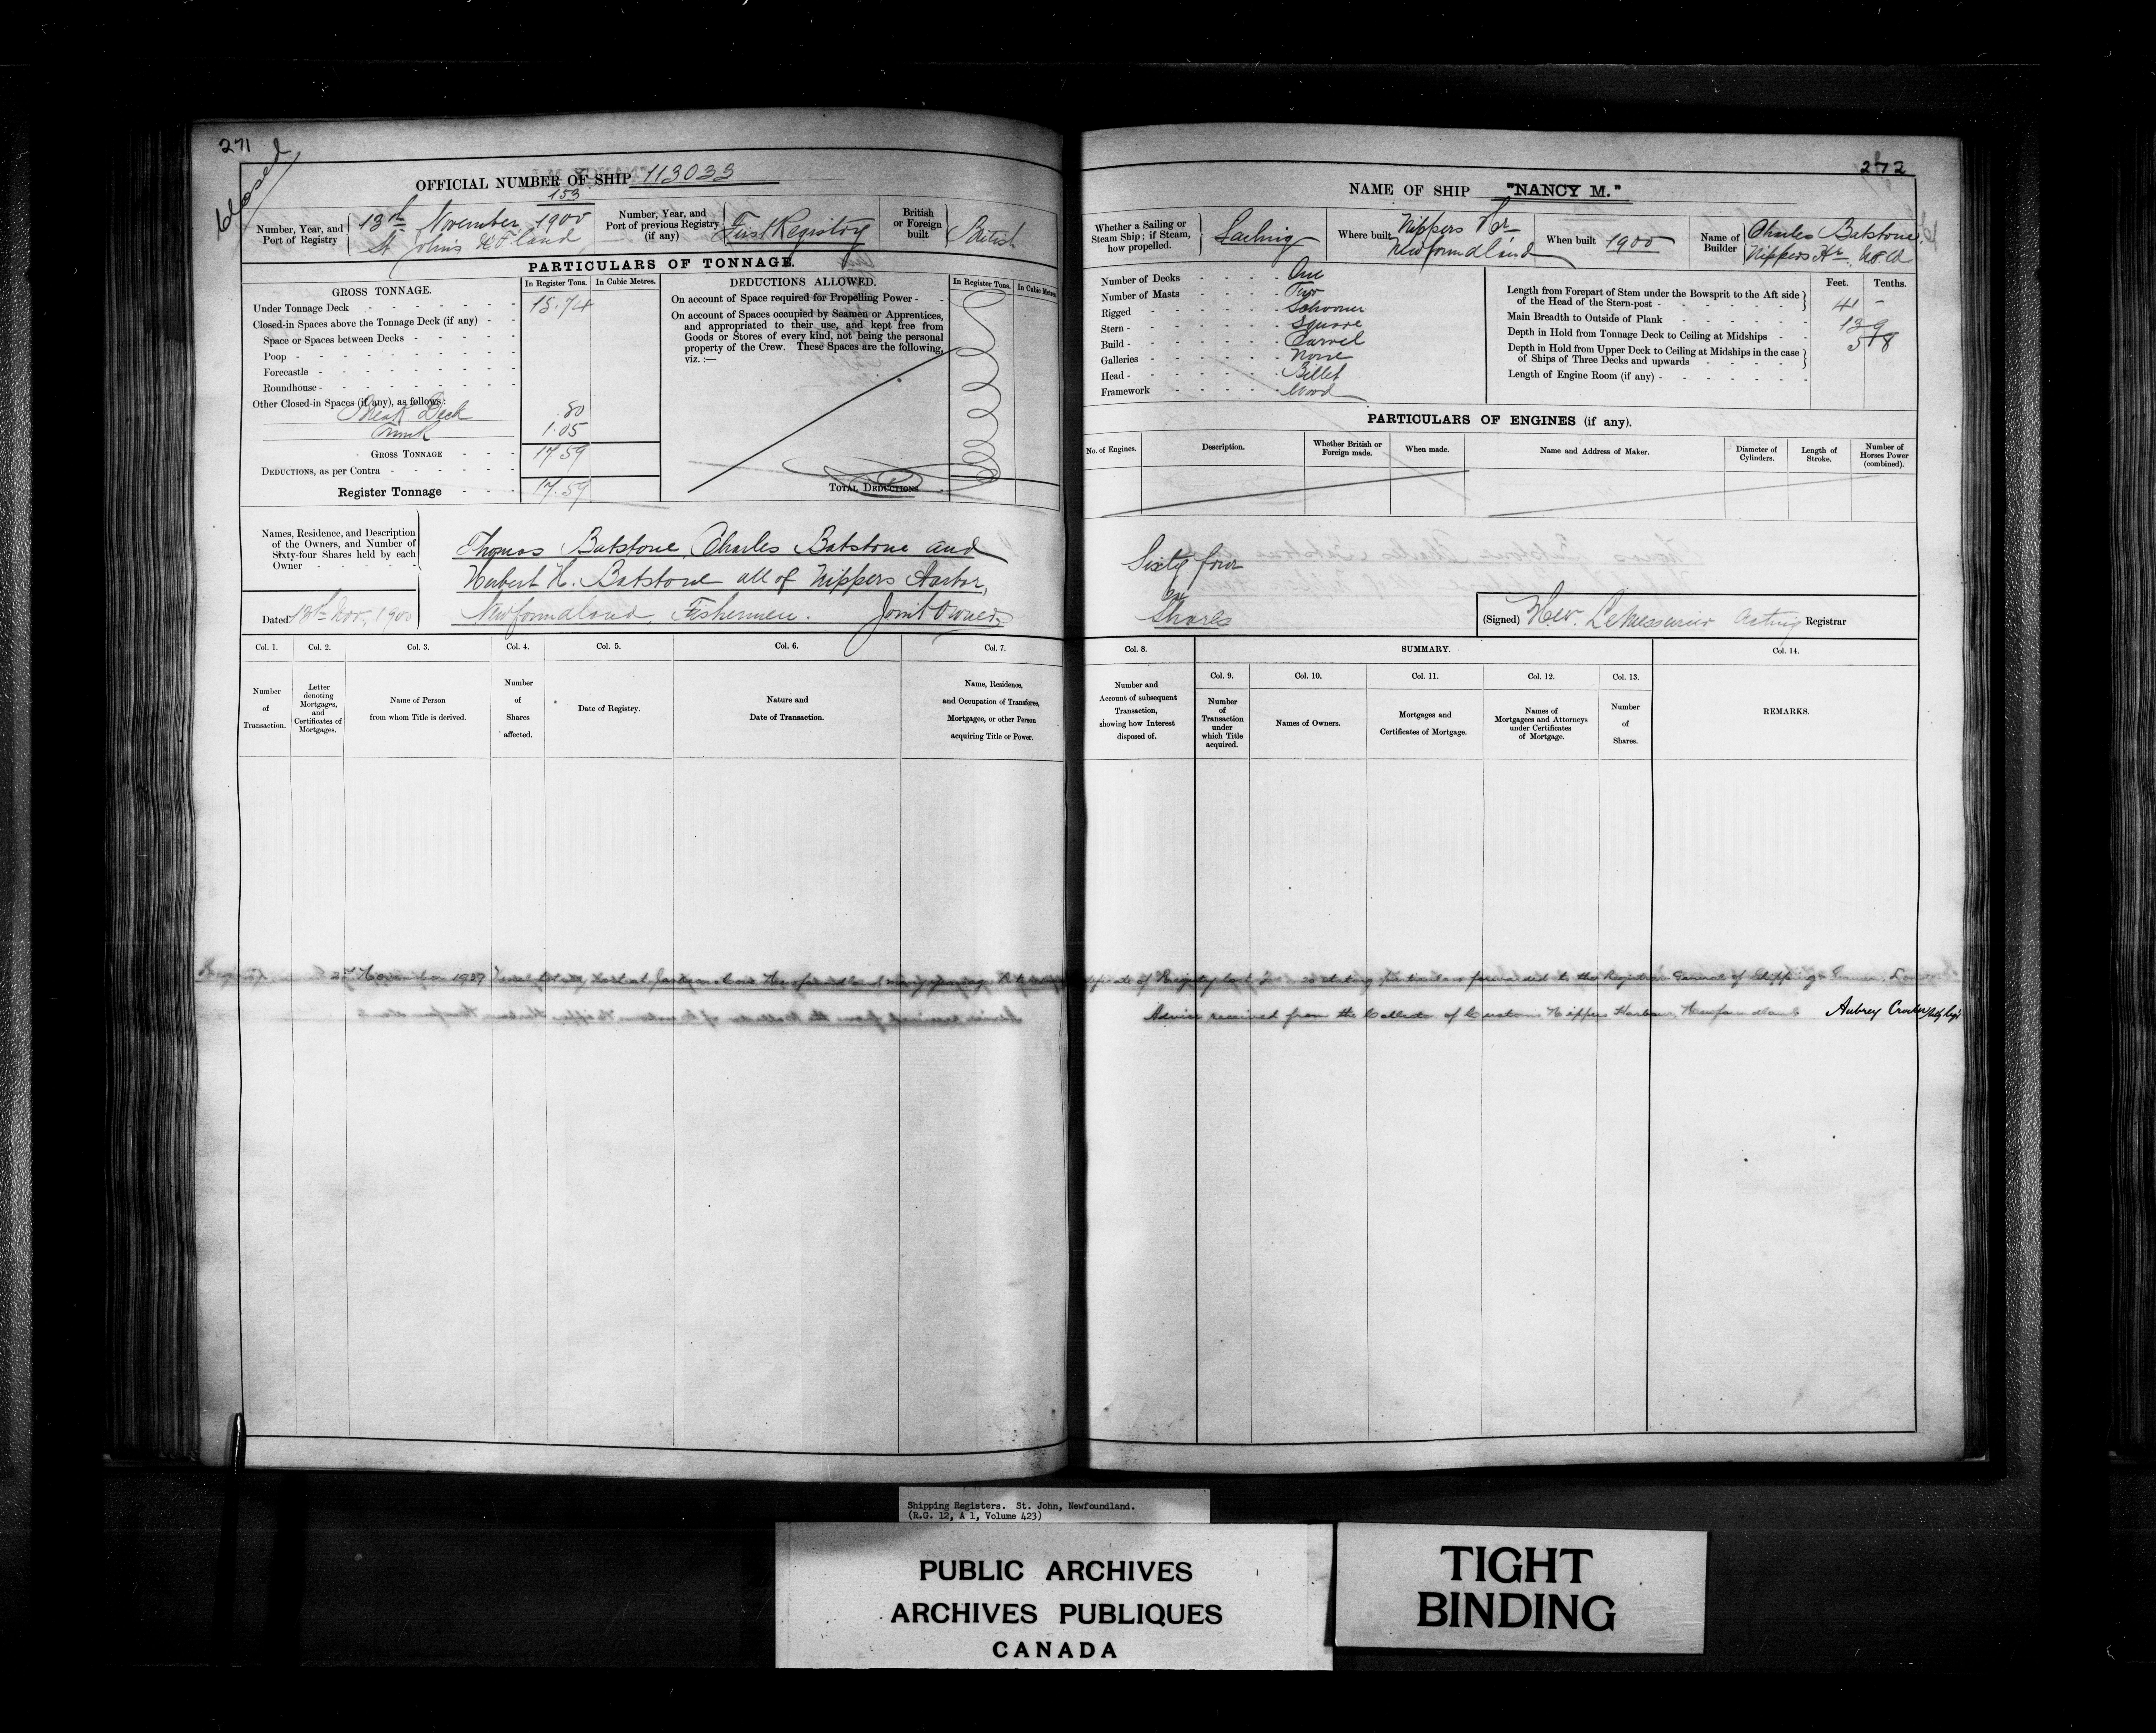 271
Closed
OFFICIAL NUMBER OF SHIP 113033
153
Number, Year, and Port of Registry
13th November 1900
St. John's N.F.land
Number, Year, and Port of previous Registry (if any)
First Registry
British or Foreign built
British
PARTICULARS OF TONNAGE.
GROSS TONNAGE.
In Register Tons.
In Cubic Metres.
Under Tonnage Deck 15.74
Closed-in Spaces above the Tonnage Deck (if any)
Space or Spaces between Decks
Poop
Forecastle
Roundhouse
Other Closed-in Spaces (if any), as follows:
Break Deck .80
Trunk 1.05
GROSS TONNAGE 17.59
DEDUCTIONS, as per Contra
Register Tonnage 17.59
DEDUCTIONS ALLOWED.
In Register Tons.
In Cubic Metres.
On account of Space required for Propelling Power
On account of Spaces occupied by Seamen or Apprentices,
and appropriated to their use, and kept free from
Goods or Stores of every kind, not being the personal
property of the Crew. These Spaces are the following,
viz.:—
TOTAL DEDUCTIONS
Names, Residence, and Description
of the Owners, and Number of
Sixty-four Shares held by each
Owner
Dated 13th Nov, 1900
Thomas Batstone, Charles Batstone and
Herbert H. Batstone all of Nippers Harbor,
Newfoundland, Fishermen. Joint Owners
Col. 1.
Number of Transaction.
Col. 2.
Letter denoting Mortgages, and Certificates of Mortgages.
Col. 3.
Name of Person from whom Title is derived.
Col. 4.
Number of Shares affected.
Col. 5.
Date of Registry.
Col. 6.
Nature and Date of Transaction.
Col. 7.
Name, Residence, and Occupation of Transferee, Mortgagee, or other Person acquiring Title or Power.
272
NAME OF SHIP "NANCY M."
Whether a Sailing or Steam Ship; if Steam, how propelled.
Sailing
Where built
Nippers Hr
Newfoundland
When built 1900
Name of Builder
Charles Batstone,
Nippers Hr. N.F.ld
Number of Decks One
Number of Masts Two
Rigged Schooner
Stern Square
Build Carvel
Galleries None
Head Billet
Framework Wood
Feet. Tenths.
Length from Forepart of Stem under the Bowsprit to the Aft side of the Head of the Stern-post 41 –
Main Breadth to Outside of Plank 13 9
Depth in Hold from Tonnage Deck to Ceiling at Midships 5 8
Depth in Hold from Upper Deck to Ceiling at Midships in the case of Ships of Three Decks and upwards
Length of Engine Room (if any)
PARTICULARS OF ENGINES (if any).
No. of Engines.
Description.
Whether British or Foreign made.
When made.
Name and Address of Maker.
Diameter of Cylinders.
Length of Stroke.
Number of Horses Power (combined).
Sixty four
Shares
(Signed) LeMessurier Acting Registrar
Col. 8.
Number and Account of subsequent Transaction, showing how Interest disposed of.
SUMMARY.
Col. 9.
Number of Transaction under which Title acquired.
Col. 10.
Names of Owners.
Col. 11.
Mortgages and Certificates of Mortgage.
Col. 12.
Names of Mortgagees and Attorneys under Certificates of Mortgage.
Col. 13.
Number of Shares.
Col. 14.
REMARKS.
Vessel totally lost at Newfoundland many years ago
Certificate of Registry lost forwarded to the Registrar General of Shipping
Advice received from the Collector of Customs Nippers Harbour, Newfoundland. Aubrey Crocker
Shipping Registers. St. John, Newfoundland.
(R.G. 12, A 1, Volume 423)
PUBLIC ARCHIVES
ARCHIVES PUBLIQUES
CANADA
TIGHT
BINDING